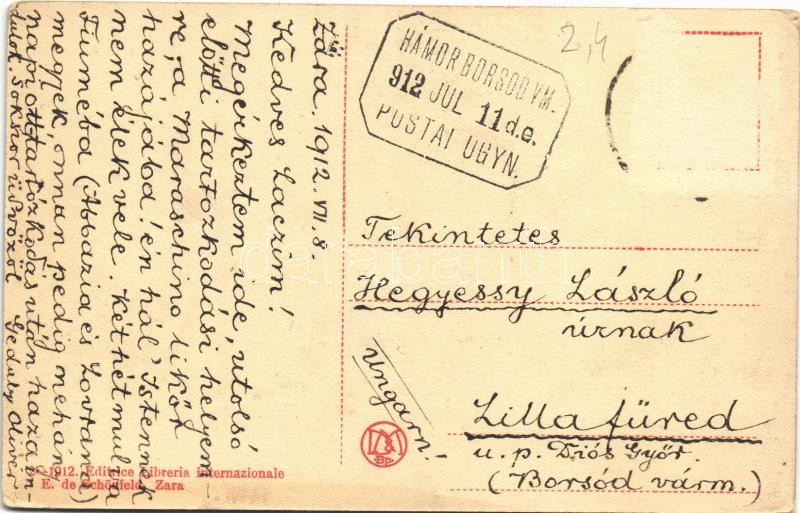 Zára. 1912. VII. 8.
Kedves Laczim!
Megérkeztem ide, utolsó
előtti tartozkodási helyem-
re, a Maraschino likőr
hazájába! én hál' Istennek
nem élek vele. Két hét mulva
Fiuméba (Abbazia és Lovrana)
megyek, onnan pedig néhány
napi otttartózkodás után haza in-
dulok. Sokszor üdvözöl Geduly Oliver
2,4
HÁMOR BORSOD VM.
912 JUL 11 d.e.
POSTAI ÜGYN.
Tekintetes
Hegyessy László
úrnak
Ungarn.-
Lillafüred
u. p. Diós Győr.
(Borsód várm.)
1912. Editrice Libreria internazionale
E. de Schönfeld, Zara
darabanth